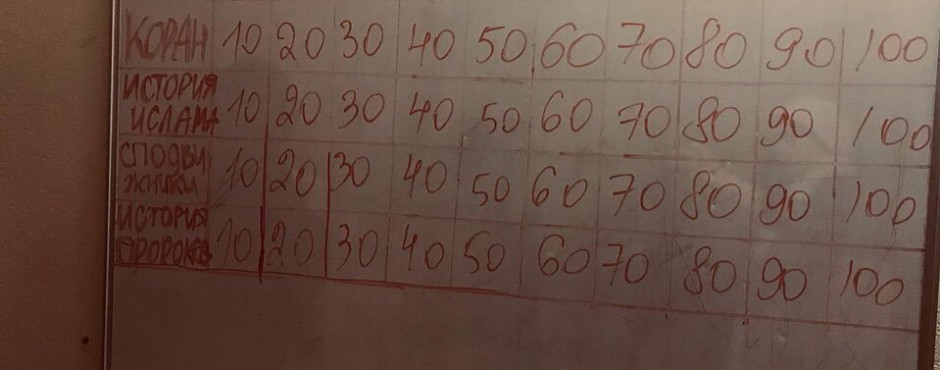 КОРАН 10 20 30 40 50 60 70 80 90 100
ИСТОРИЯ
ИСЛАМА 10 20 30 40 50 60 70 80 90 100
СПОДВИ
ЖНИКИ 10 20 30 40 50 60 70 80 90 100
ИСТОРИЯ
ПРОРОКОВ 10 20 30 40 50 60 70 80 90 100